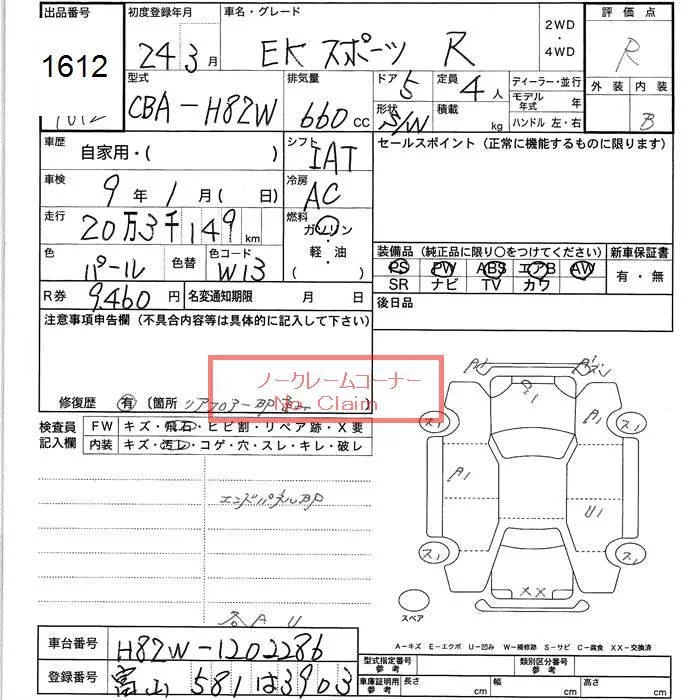 出品番号 初度登録年月 車名・グレード 2WD・4WD 評価点
1612 24 3月 EKスポーツ R R
型式 排気量 ドア 5 定員 4人 ディーラー・並行 外装 内装
CBA-H82W 660cc 形状 S/W 積載 kg モデル年式 年
ハンドル 左・右 B
車歴 自家用・( ) シフト IAT セールスポイント (正常に機能するものに限ります)
車検 9年1月(日) 冷房 AC
走行 20万3千149km 燃料 ガソリン・軽・油 ( )
装備品 (純正品に限り○をつけてください) 新車保証書
色 パール 色替 色コード W13 PS PW ABS エアB AW 有・無
SR ナビ TV カワ
R券 9,460円 名変通知期限 月 日 後日品
注意事項申告欄 (不具合内容等は具体的に記入して下さい)
ノークレームコーナー
No Claim
修復歴 有 〔箇所 リアフロアー
検査員記入欄 FW キズ・飛石・ヒビ割・リペア跡・X要
内装 キズ・汚レ・コゲ・穴・スレ・キレ・破レ
エンドパネル
各A U
A1
A1
U1
ス1
ス1
ス1
ス1
XX
スペア
A-キズ E-エクボ U-凹み W-補修跡 S-サビ C-腐食 XX-交換済
車台番号 H82W-1202286
型式指定番号 参考 類別区分番号 参考
登録番号 富山 581 は 3903
車庫証明用 参考 長さ cm 幅 cm 高さ cm